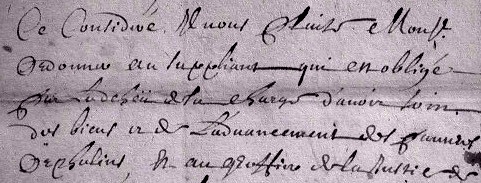 Ce Considéré Il vous plaise Mons.r
ordonner au suppliant qui est obligé
par le de la charge d'avoir soin
des biens et de l'aduancement des pauures
orphelins, et au greffier de la Justice de